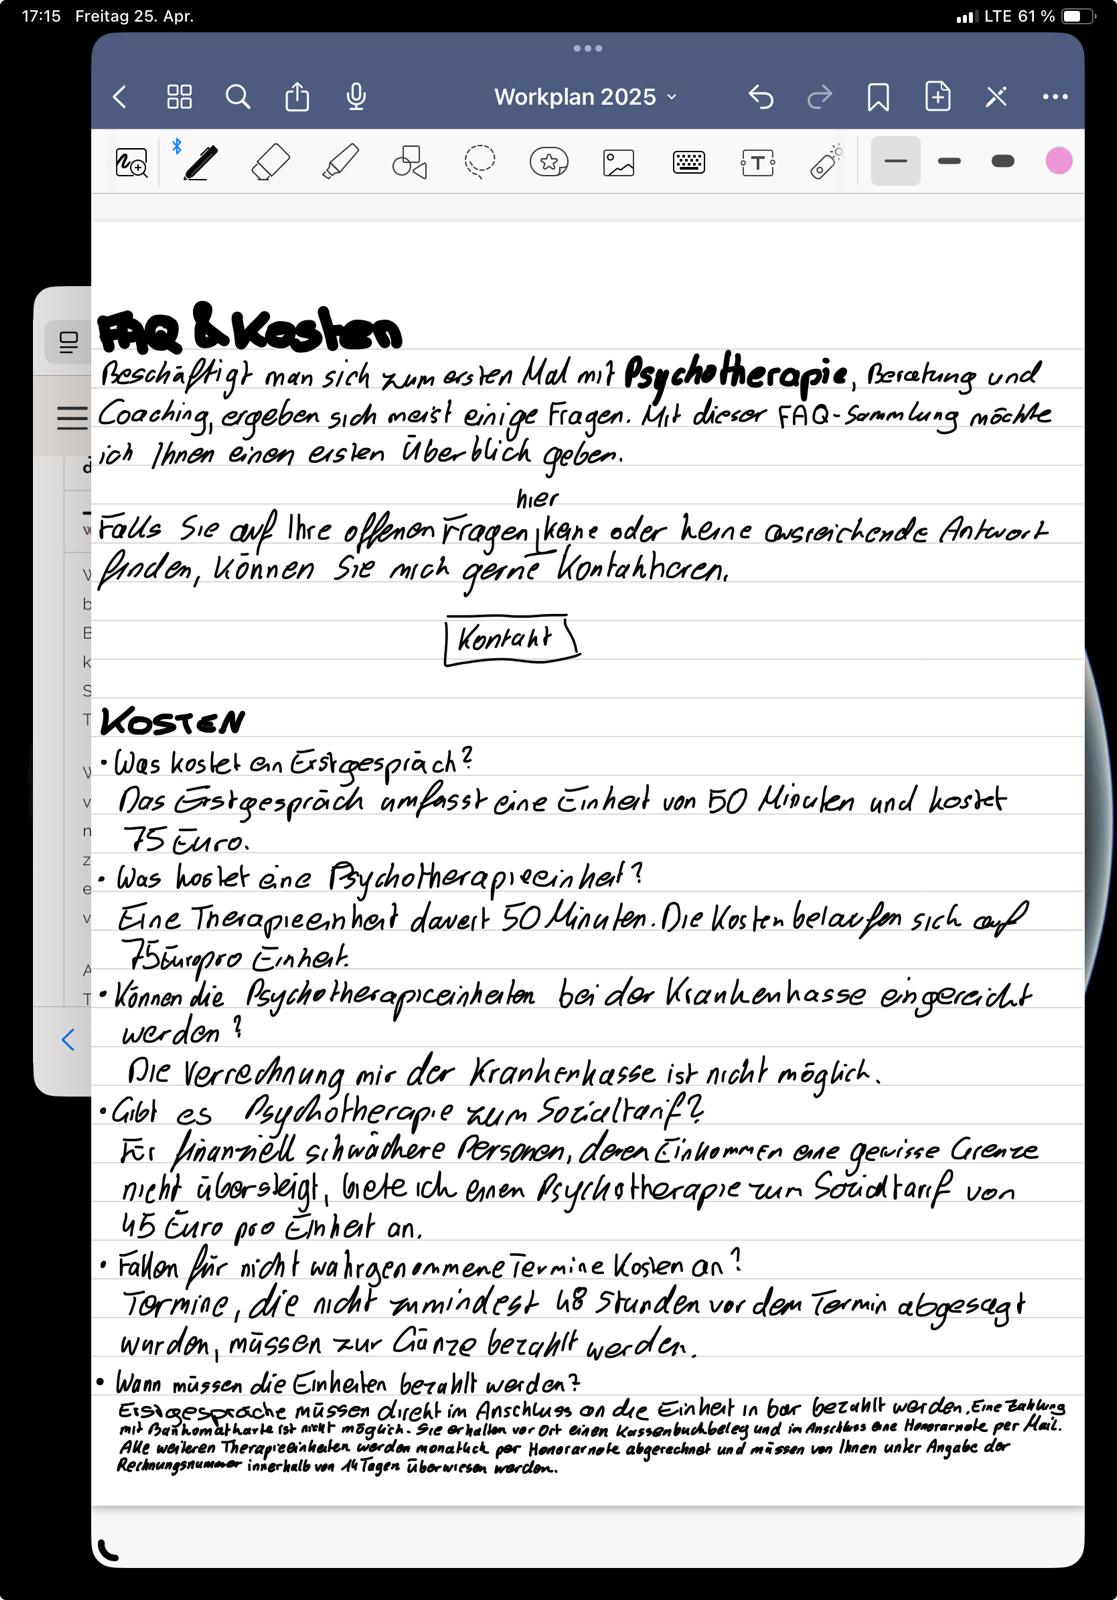 17:15 Freitag 25. Apr. LTE 61 %
Workplan 2025
T
FAQ & Kosten
Beschäftigt man sich zum ersten Mal mit Psychotherapie, Beratung und
Coaching, ergeben sich meist einige Fragen. Mit dieser FAQ-Sammlung möchte
ich Ihnen einen ersten Überblick geben.
hier
Falls Sie auf Ihre offenen Fragen keine oder keine ausreichende Antwort
finden, können Sie mich gerne kontaktieren.
Kontakt
KOSTEN
• Was kostet ein Erstgespräch?
Das Erstgespräch umfasst eine Einheit von 50 Minuten und kostet
75 Euro.
• Was kostet eine Psychotherapieeinheit?
Eine Therapieeinheit dauert 50 Minuten. Die Kosten belaufen sich auf
75 Euro pro Einheit.
• Können die Psychotherapieeinheiten bei der Krankenkasse eingereicht
werden?
Die Verrechnung mir der Krankenkasse ist nicht möglich.
• Gibt es Psychotherapie zum Sozialtarif?
Für finanziell schwächere Personen, deren Einkommen eine gewisse Grenze
nicht übersteigt, biete ich einen Psychotherapie zum Sozialtarif von
45 Euro pro Einheit an.
• Fallen für nicht wahrgenommene Termine Kosten an?
Termine, die nicht zumindest 48 Stunden vor dem Termin abgesagt
wurden, müssen zur Gänze bezahlt werden.
• Wann müssen die Einheiten bezahlt werden?
Erstgespräche müssen direkt im Anschluss an die Einheit in bar bezahlt werden. Eine Zahlung
mit Bankomatkarte ist nicht möglich. Sie erhalten vor Ort einen Kassenbuchbeleg und im Anschluss eine Honorarnote per Mail.
Alle weiteren Therapieeinheiten werden monatlich per Honorarnote abgerechnet und müssen von Ihnen unter Angabe der
Rechnungsnummer innerhalb von 14 Tagen überwiesen werden.